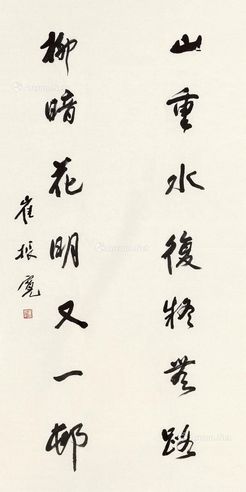 山重水復疑無路
柳暗花明又一邨
崔振寬